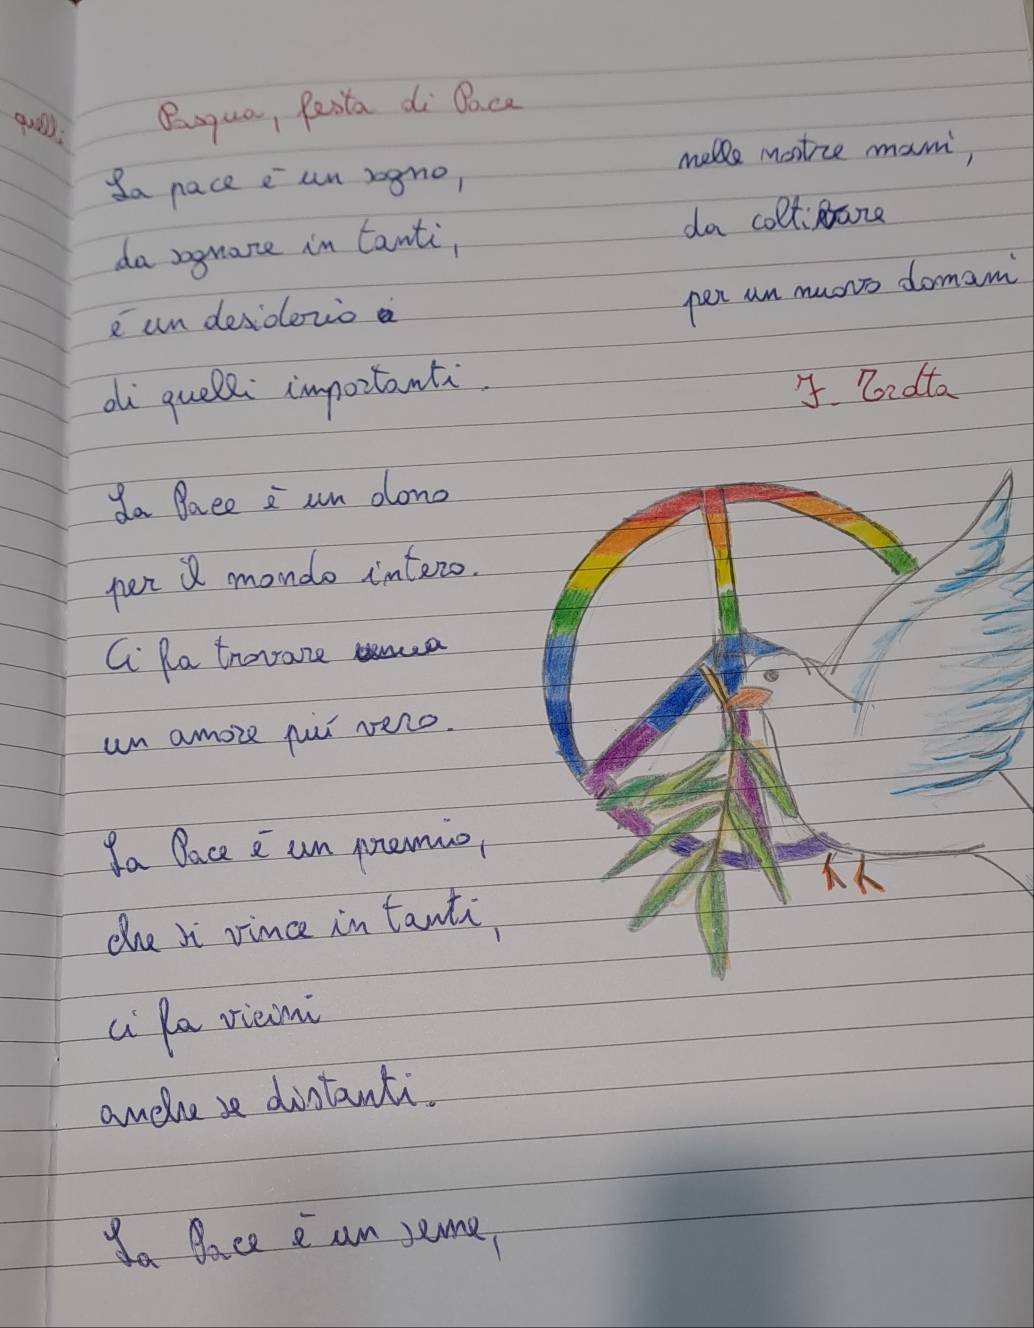 quelli
Pasqua, festa di Pace
La pace è un sogno,
da sognare in tanti,
è un desiderio
di quelli importanti.
La Pace è un dono
per il mondo intero.
Ci fa trovare
un amore più vero.
La Pace è un premio,
che si vince in tanti,
ci fa vicini
anche se distanti.
La Pace è un seme,
nelle nostre mani,
da coltivare
per un nuovo domani